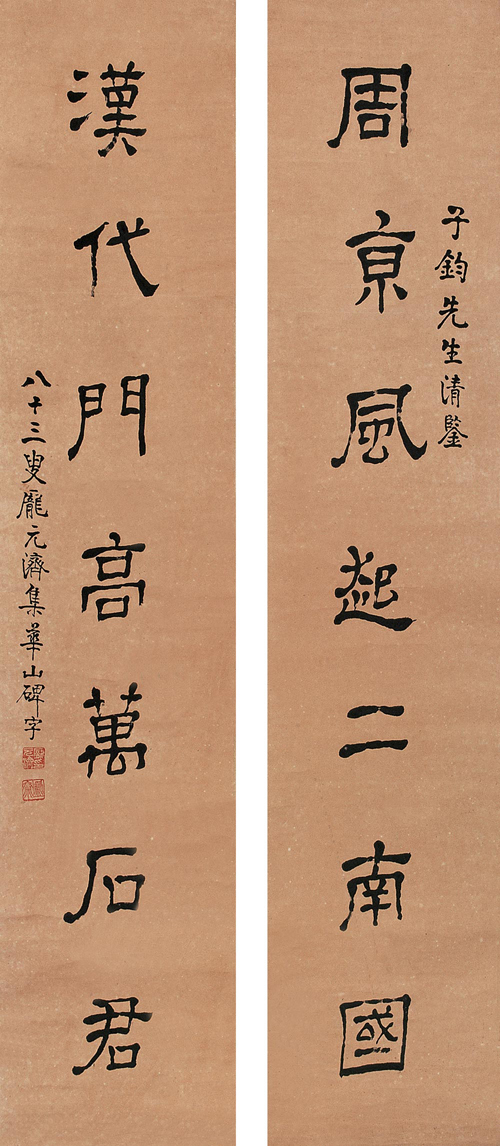 子鈞先生清鑒
周亰風起二南國
漢代門高萬石君
八十三叟龐元濟集華山碑字